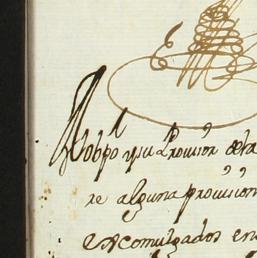 Nobpo y su Provisor dela
re alguna provision
excomulgados en